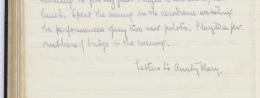 lunch. Spent the morning on the aerodrome watching
the performances of my two new pilots. Played a few
rubbers of bridge in the evening.
Letters to Aunty Mary.